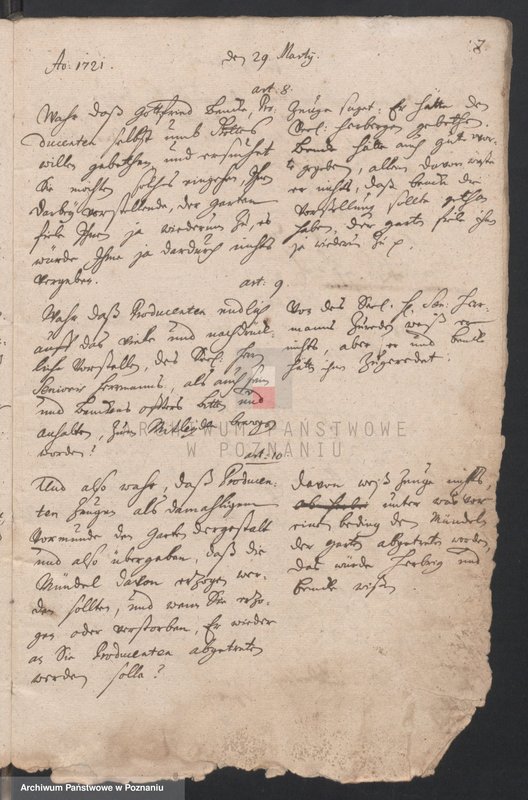 7
Ao: 1721.
den 29 Martÿ.
art: 8.
Wahr daß Gottfried Bencke, Pro-
ducenten selbst umb Gottes
willen gebethen und ersuchet
Sie möchten solches eingehen Ihm
darbeÿ vorstellende, der garten
fiele Ihnen ja wiederum zu, es
würde Ihme ja dardurch nichts
vergeben.
Zeuge saget: Er hätte den
Seel: Herbergen gebethen.
Bencke hätte auch gut wor-
te gegeben, allein davon wüste
er nichts, daß Bencke die
Vorstellung sollte gethan
haben, der garten fiele ihm
ja wiederum zu p.
art: 9.
Wahr daß Producenten endlich
auff das viele und nachdrück-
liche Vorstellen, des Seel: Herrn
Senioris Herrmanns, als auch sein
und Benckens öffters bitten und
anhalten, zum Mitleÿden bewogen
worden?
Von des Seel: H. Sen: Her-
manns Zureden weiß er
nichts, aber er und Bencke
hätten ihm zugeredet.
art: 10
Und also wahr, daß Producen-
ten Zeugen als damahligem
Vormunde den Garten dergestalt
und also übergeben, daß die
Mündel davon erzogen wer-
den sollten, und wenn Sie erzo-
gen oder verstorben, Er wieder
an Sie Producenten abgetreten
werden solle?
Davon weiß Zeuge nichts,
unter was vor
einem beding den Mündeln
der garten abgetreten worden,
das würde Herberg und
Bencke wißen
ARCHIWUM PAŃSTWOWE
W POZNANIU
Archiwum Państwowe w Poznaniu